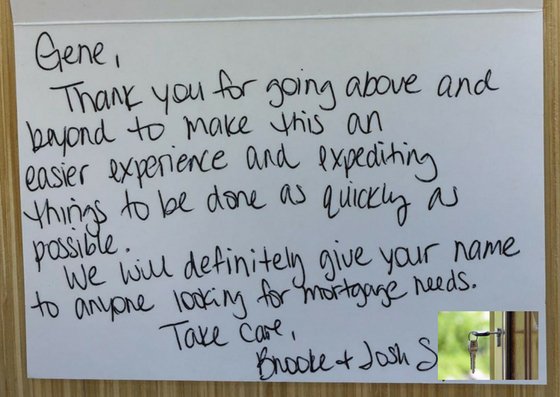 Gene,
Thank you for going above and
beyond to make this an
easier experience and expediting
things to be done as quickly as
possible.
We will definitely give your name
to anyone looking for mortgage needs.
Take Care,
Brooke + Josh S